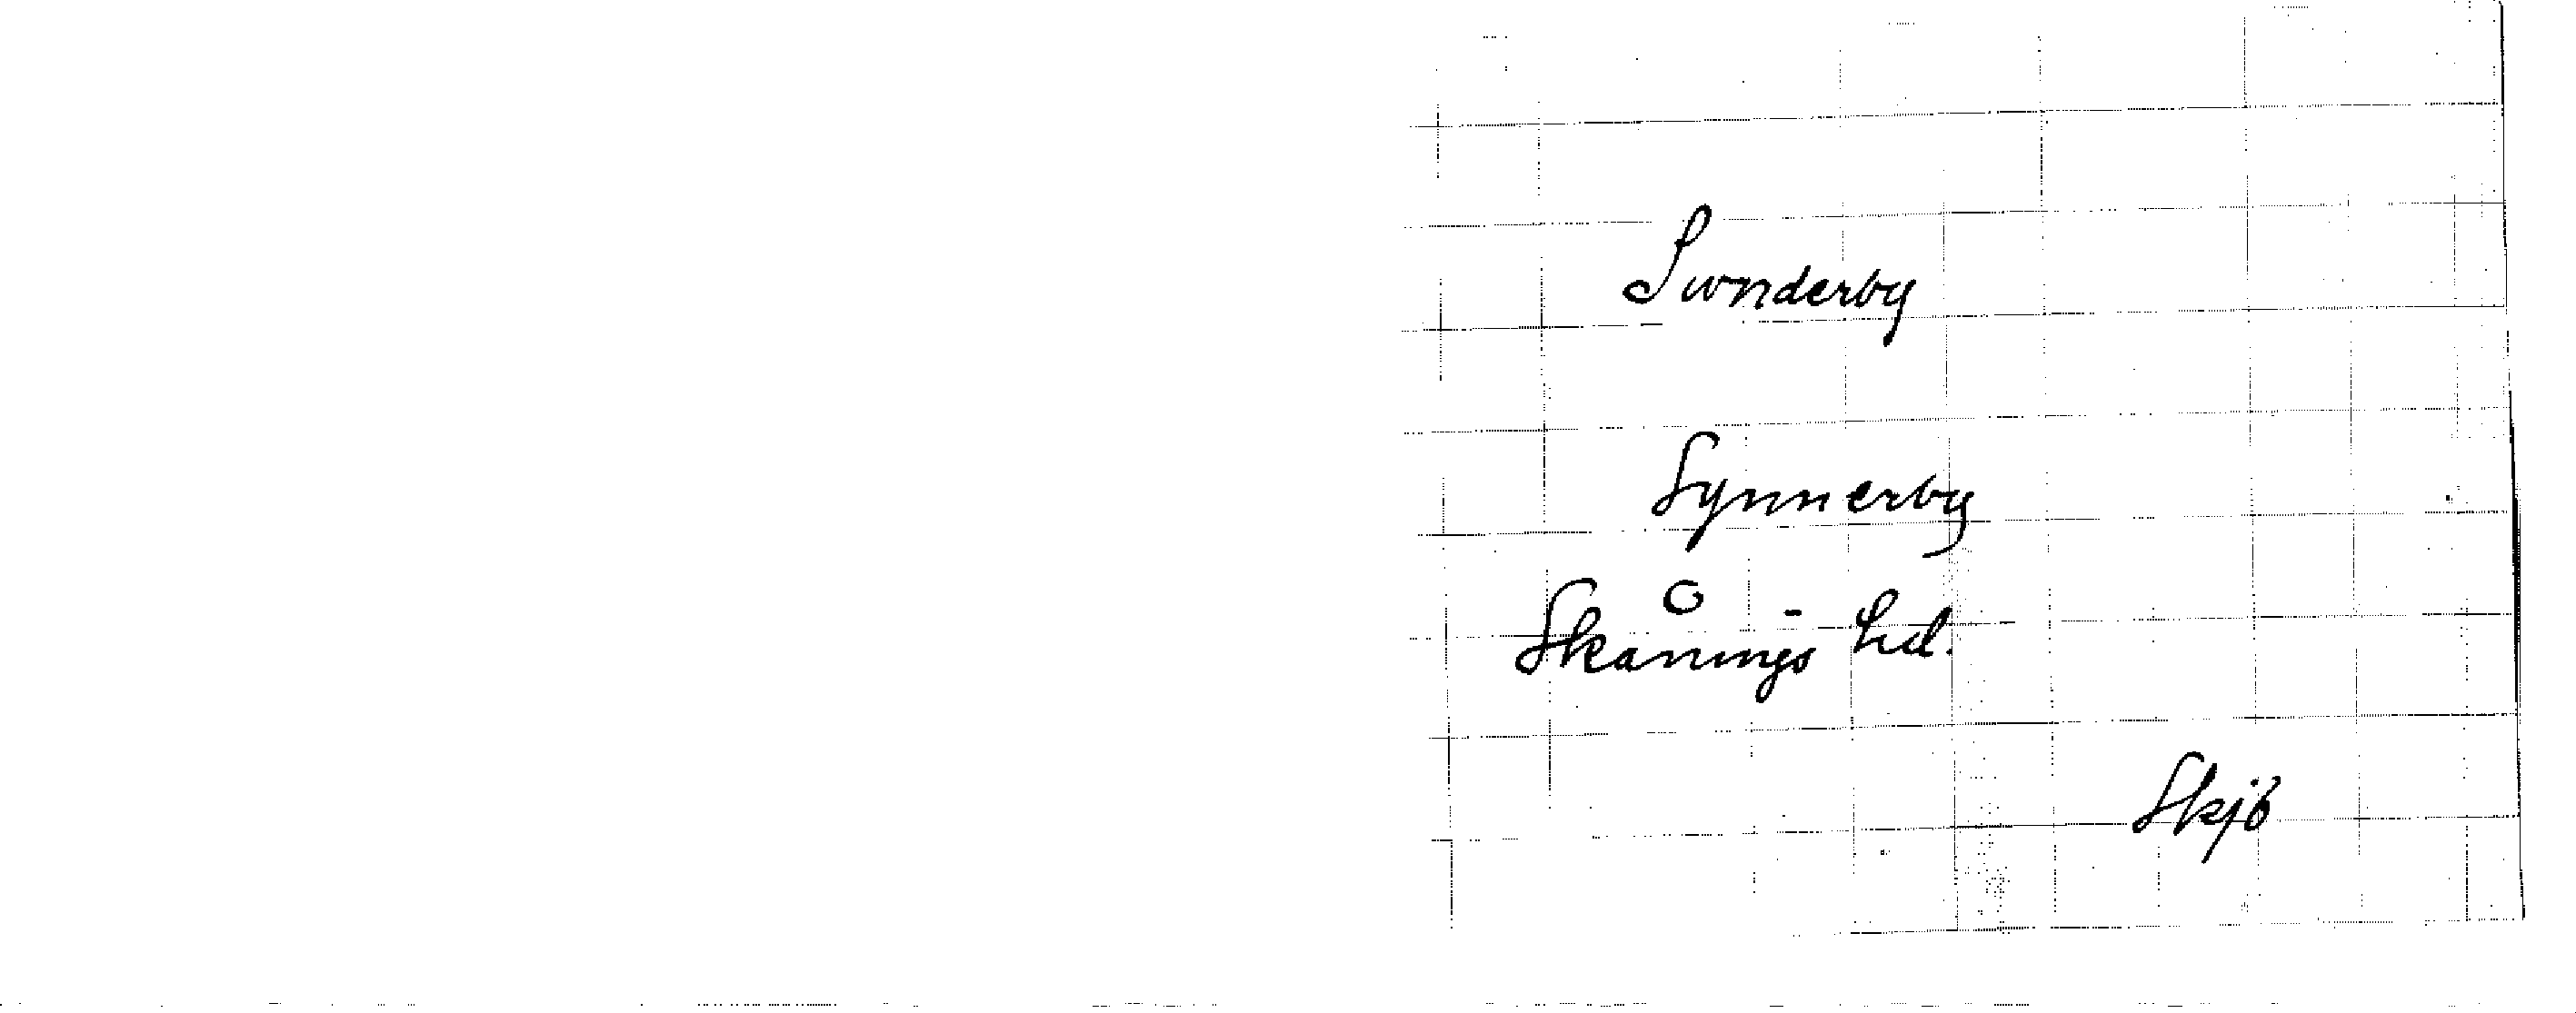 Sunderby
Synnerby
Skånings hd.
Skjö